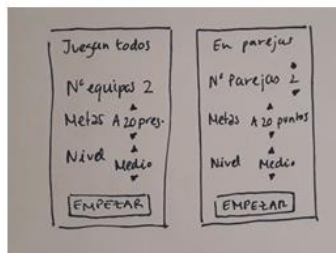 Juegan todos
Nº equipos 2
Metas A 20 pres.
Nivel Medio
EMPEZAR
En parejas
Nº Parejas 2
Metas A 20 puntos
Nivel Medio
EMPEZAR